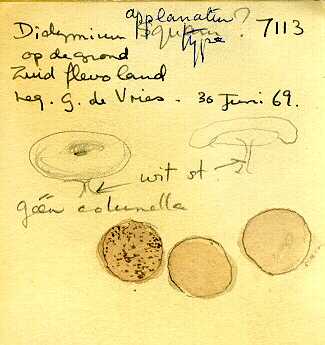 applanatum?
Didymium squam. 7113
type
op de grond
Zuid flevoland
leg. G. de Vries. 30 Juni 69.
wit st.
géén columella